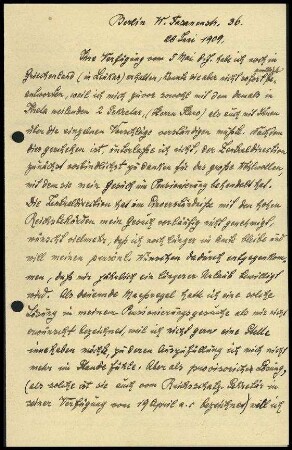 Berlin W. Fasanenstr. 36.
26 Juni 1909.
Ihre Verfügung vom 5 Mai d.J. habe ich noch in
Griechenland (in Leukas) erhalten, konnte sie aber nicht sofort
amtlich
beantworten, weil ich mich zuvor sowohl mit dem damals in
Thera weilenden 2 Sekretar, (Herrn Karo) als auch mit Ihnen
über die einzelnen Vorschläge verständigen mußte. Nachdem
dies geschehen ist, unterlasse ich nicht, der Zentraldirection
zunächst verbindlichst zu danken für das große Wohlwollen
mit dem sie mein Gesuch um Pensionierung behandelt hat.
Die Zentraldirection hat im Einverständnisse mit den hohen
Reichsbehörden mein Gesuch vorläufig nicht genehmigt,
wünscht vielmehr, daß ich noch länger im Amte bleibe und
will meinen persönl. Wünschen dadurch entgegenkommen,
daß mir jährlich ein längerer Urlaub bewilligt
wird. Als dauernde Massregel hatte ich eine solche
Lösung in meinem Pensionierungsgesuche als nicht
erwünscht bezeichnet, weil ich nicht gern eine Stelle
innehaben möchte, zu deren Ausfüllung ich mich nicht
mehr im Stande fühle. Aber als provisorische Lösung,
(als solche ist sie auch vom Reichsschatz-Sekretär in
seiner Verfügung vom 19 April a. c. bezeichnet) will ich